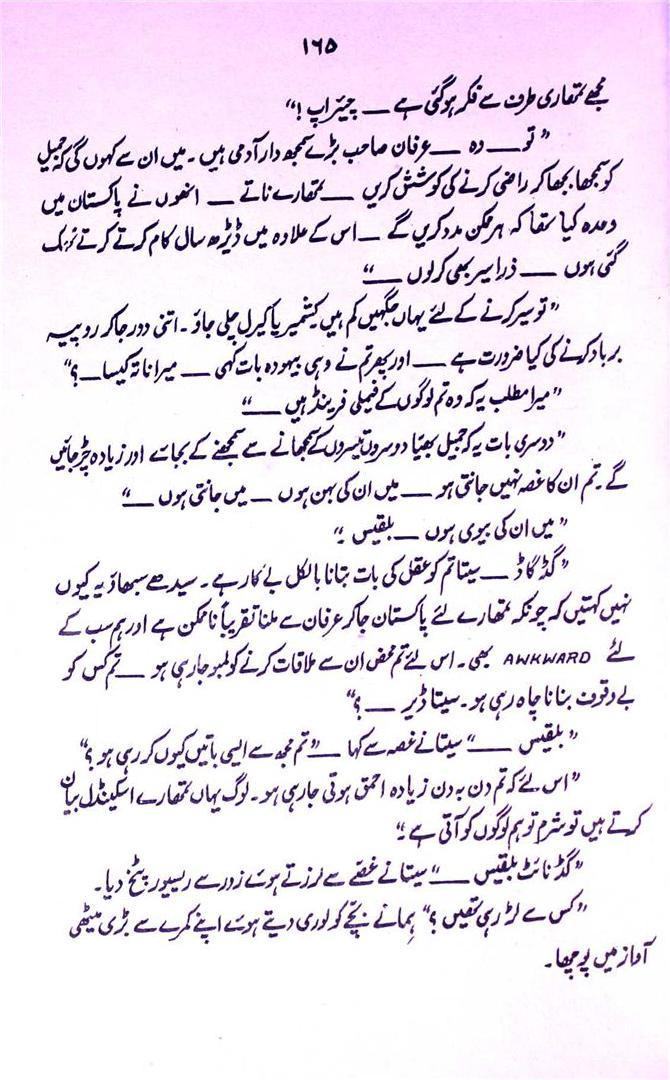 ۱۶۵
مجھے تمھاری طرف سے فکر ہو گئی ہے ــــ چیئر اپ !“
”تو ــــ وہ ــــ عرفان صاحب بڑے سمجھ دار آدمی ہیں۔ میں ان سے کہوں گی کہ جمیل
کو سمجھا بجھا کر راضی کرنے کی کوشش کریں ــــ تمھارے ناتے ــــ انھوں نے پاکستان میں
وعدہ کیا تھا کہ ہر ممکن مدد کریں گے ــــ اس کے علاوہ میں ڈیڑھ سال کام کرتے کرتے تھک
گئی ہوں ــــ ذرا سیر بھی کر لوں ــــ“
”تو سیر کرنے کے لئے یہاں جگہیں کم ہیں کشمیر یا کیرل چلی جاؤ۔ اتنی دور جا کر روپیہ
برباد کرنے کی کیا ضرورت ہے ــــ اور پھر تم نے وہی بیہودہ بات کہی ــــ میرا ناتہ کیسا ــــ؟“
”میرا مطلب یہ کہ وہ تم لوگوں کے فیملی فرینڈ ہیں ــــ“
”دوسری بات یہ کہ جمیل بھیّا دوسروں تیسروں کے سمجھانے سے سمجھنے کے بجائے اور زیادہ چڑ جائیں
گے۔ تم ان کا غصہ نہیں جانتی ہو ــــ میں ان کی بہن ہوں ــــ میں جانتی ہوں ــــ“
”میں ان کی بیوی ہوں ــــ بلقیس۔“
”گڈ گاڈ ــــ سیتا تم کو عقل کی بات بتانا بالکل بے کار ہے۔ سیدھے سبھاؤ یہ کیوں
نہیں کہتیں کہ چونکہ تمھارے لئے پاکستان جا کر عرفان سے ملنا تقریباً ناممکن ہے اور ہم سب کے
لئے AWKWARD بھی۔ اس لئے تم محض ان سے ملاقات کرنے کولمبو جا رہی ہو ــــ تم کس کو
بے وقوف بنانا چاہ رہی ہو۔ سیتا ڈیر ــــ؟“
”بلقیس ــــ“ سیتا نے غصہ سے کہا ــــ ”تم مجھ سے ایسی باتیں کیوں کر رہی ہو؟“
”اس لئے کہ تم دن بہ دن زیادہ احمق ہوتی جا رہی ہو۔ لوگ یہاں تمھارے اسکینڈل بیان
کرتے ہیں تو شرم تو ہم لوگوں کو آتی ہے۔“
”گڈ نائٹ بلقیس ــــ“ سیتا نے غصّے سے لرزتے ہوئے زور سے ریسیور پٹخ دیا۔
”کس سے لڑ رہی تھیں؟“ ہِما نے بچّے کو لوری دیتے ہوئے اپنے کمرے سے بڑی میٹھی
آواز میں پوچھا۔